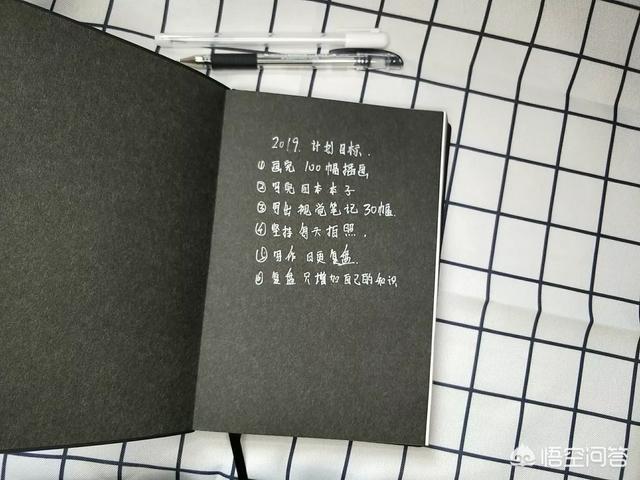 2019. 计划目标.
① 画完 100幅插画
② 写完四本本子
③ 写出视觉笔记30幅.
④ 坚持每天拍照.
⑤ 写作 日更复盘.
⑥ 复盘 只增加自己的知识
悟空问答